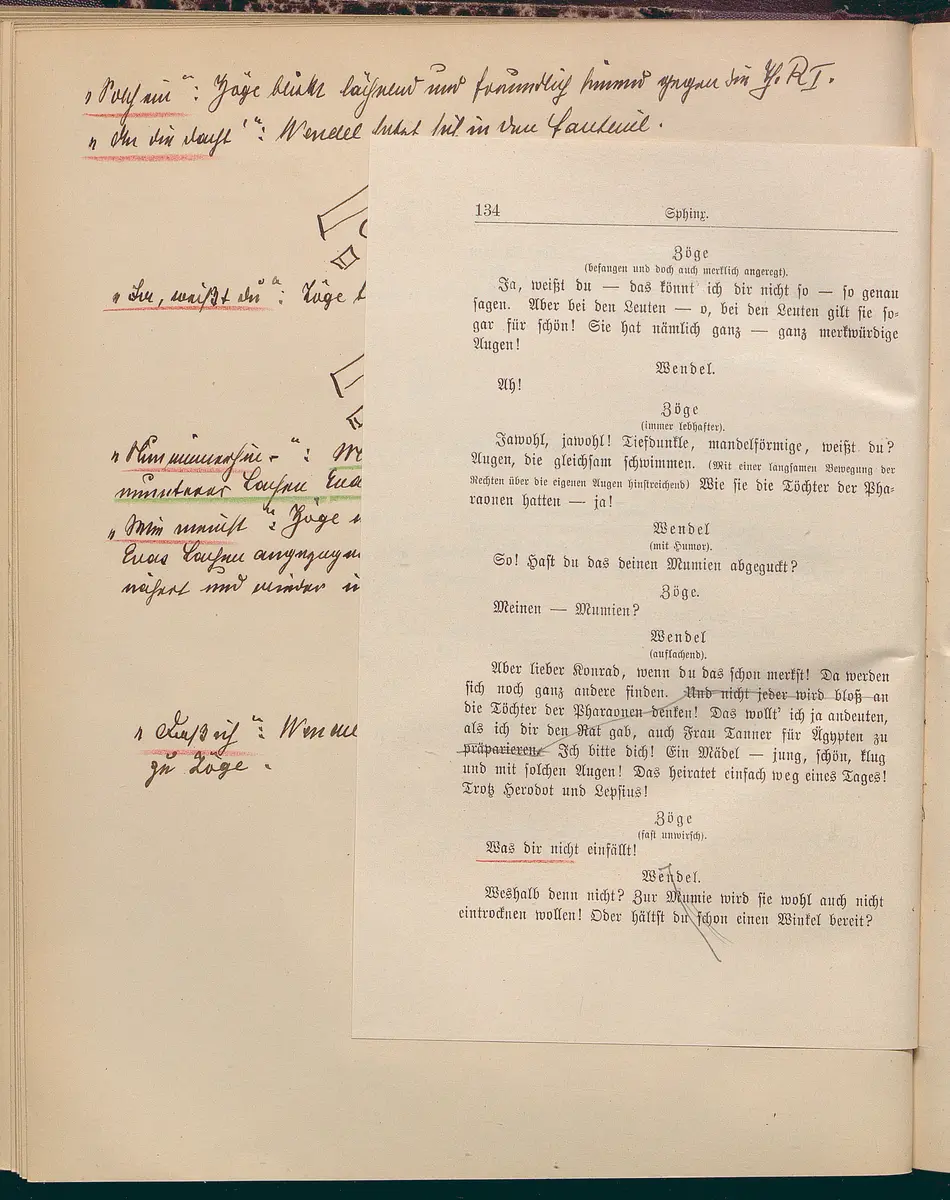 „Solch ein“: Zöge blickt lächelnd und freundlich sinnend gegen die Th. R I.
„An die dacht'“: Wendel setzt sich in den Fauteuil.
„Ja, weißt du“: Zöge
„Nun immerhin –“:
munteres Lachen Evas
„Wie meinst“: Zöge
Evas Lachen angezogen
nähert und wieder
„Daß ich“: Wendel
zu Zöge.
134 Sphinx.
Zöge
(befangen und doch auch merklich angeregt).
Ja, weißt du — das könnt' ich dir nicht so — so genau
sagen. Aber bei den Leuten — o, bei den Leuten gilt sie so-
gar für schön! Sie hat nämlich ganz — ganz merkwürdige
Augen!
Wendel.
Ah!
Zöge
(immer lebhafter).
Jawohl, jawohl! Tiefdunkle, mandelförmige, weißt du?
Augen, die gleichsam schwimmen. (Mit einer langsamen Bewegung der
Rechten über die eigenen Augen hinstreichend) Wie sie die Töchter der Pha-
raonen hatten — ja!
Wendel
(mit Humor).
So! Hast du das deinen Mumien abgeguckt?
Zöge.
Meinen — Mumien?
Wendel
(auflachend).
Aber lieber Konrad, wenn du das schon merkst! Da werden
sich noch ganz andere finden. Und nicht jeder wird bloß an
die Töchter der Pharaonen denken! Das wollt' ich ja andeuten,
als ich dir den Rat gab, auch Frau Tanner für Ägypten zu
präparieren. Ich bitte dich! Ein Mädel — jung, schön, klug
und mit solchen Augen! Das heiratet einfach weg eines Tages!
Trotz Herodot und Lepsius!
Zöge
(fast unwirsch).
Was dir nicht einfällt!
Wendel.
Weshalb denn nicht? Zur Mumie wird sie wohl auch nicht
eintrocknen wollen! Oder hältst du schon einen Winkel bereit?